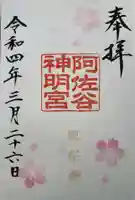 奉拝
阿佐谷
神明宮
令和四年三月二十六日